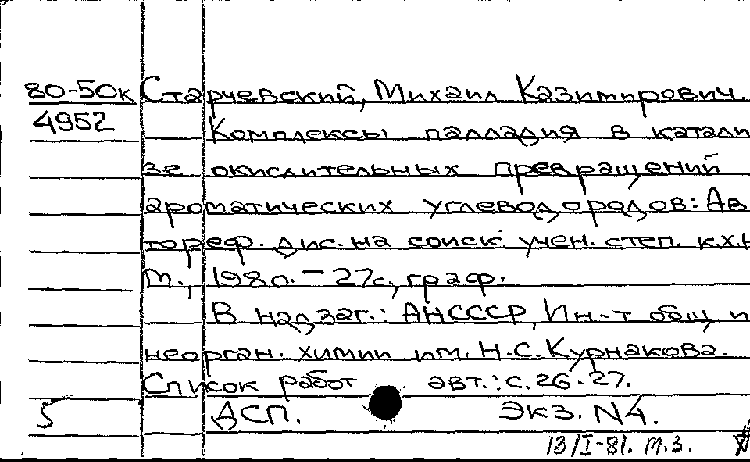 80-50к Старчевский, Михаил Казимирович.
4952 Комплексы палладия в катали
зе окислительных превращений
ароматических углеводородов: Ав
тореф. дис. на соиск. учен. степ. к.х.н
М., 1980. - 27с., граф.
В надзаг.: АНСССР, Ин-т общ и
неорган. химии им. Н.С. Курнакова.
Список работ авт.: с. 26-27.
5 ДСП. Экз. N4.
13/I-81. М.З.